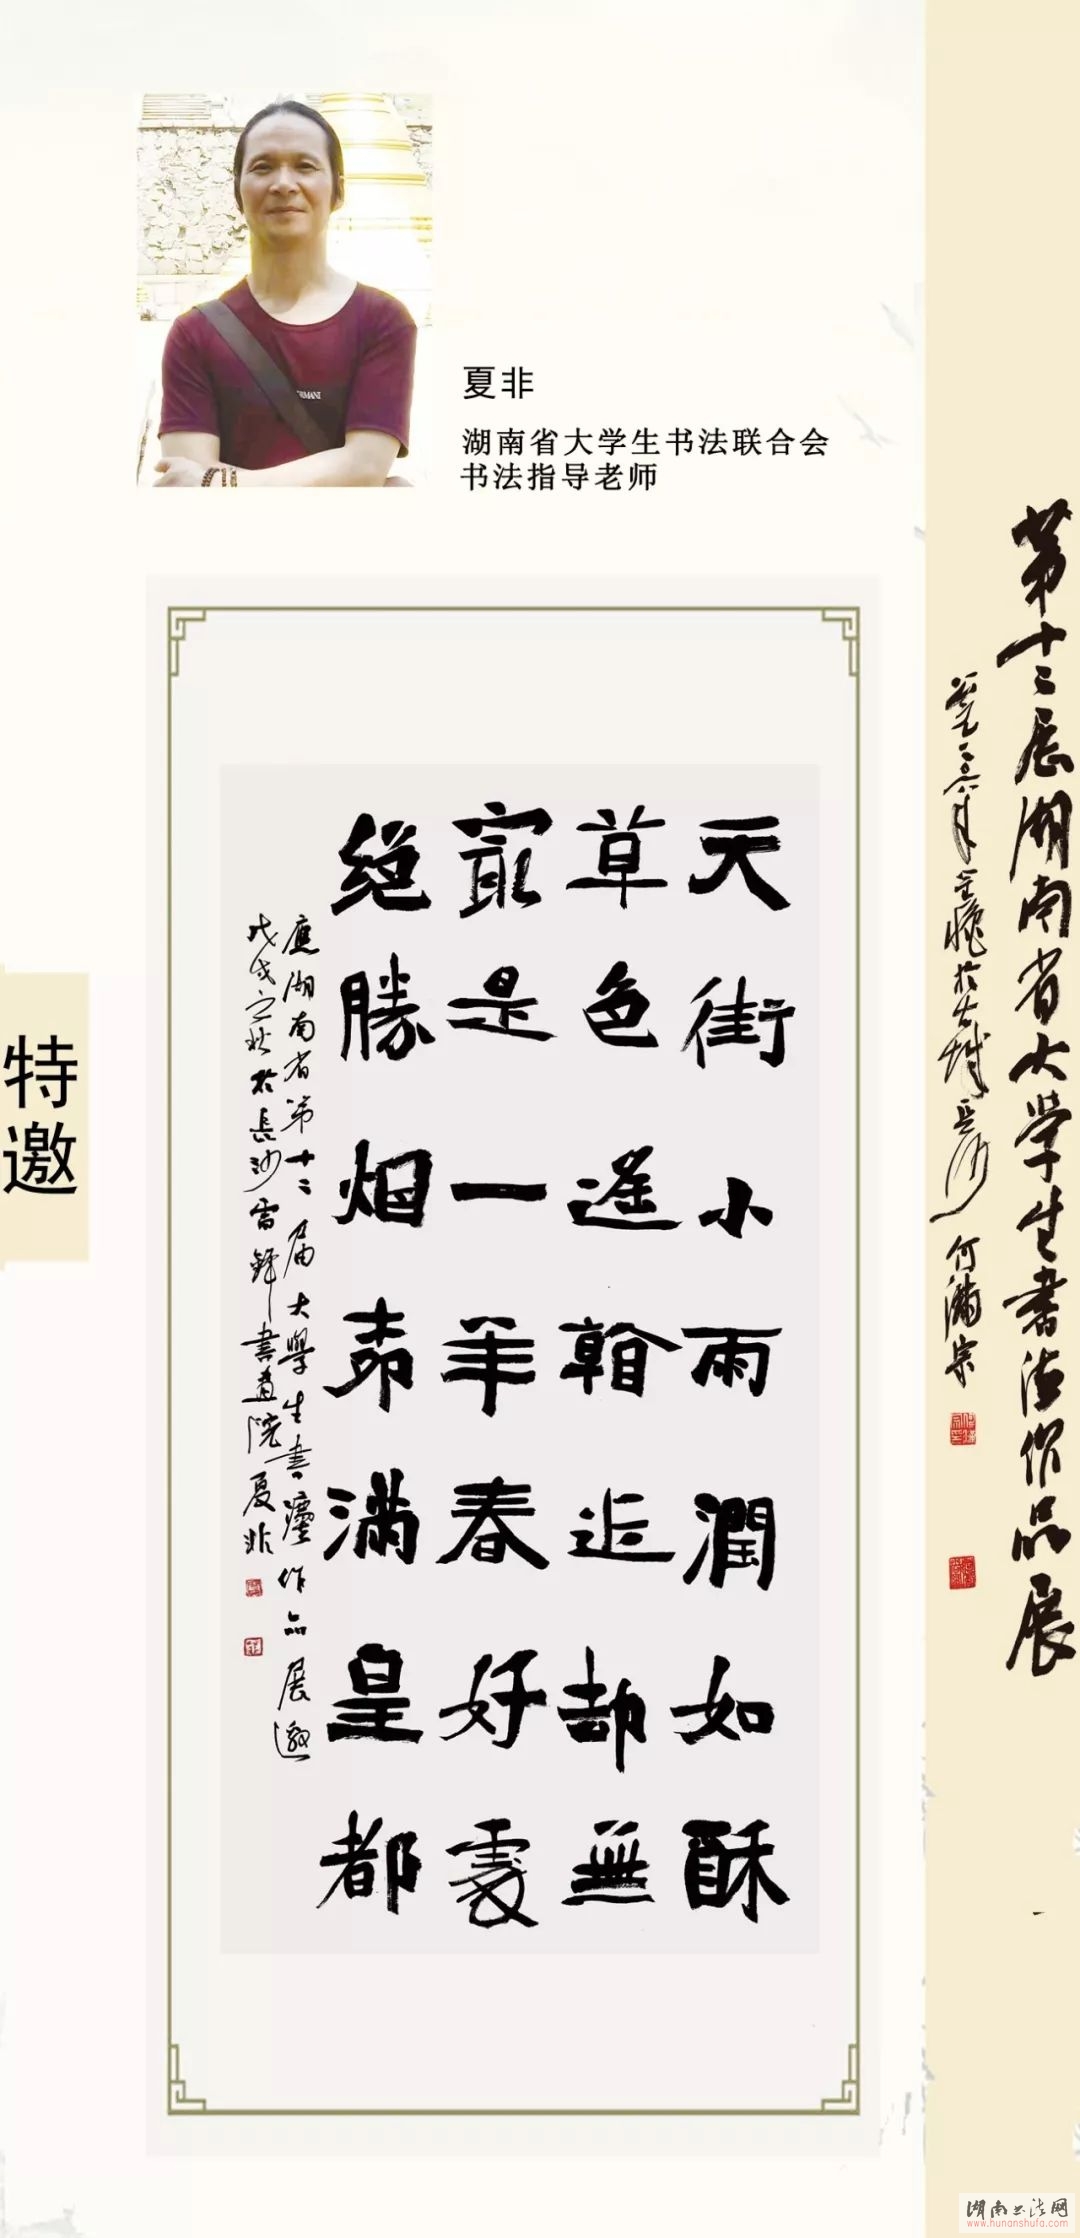 夏非
湖南省大学生书法联合会
书法指导老师
特邀
天街小雨潤如酥
草色遙看近却無
最是一年春好處
絕勝烟柳滿皇都
應湖南省第十二届大學生書法作品展邀
戊戌之秋於長沙雷鋒書畫院夏非
第十二届湖南省大学生書法作品展
何滿宗
湖南书法网
www.hunanshufa.com